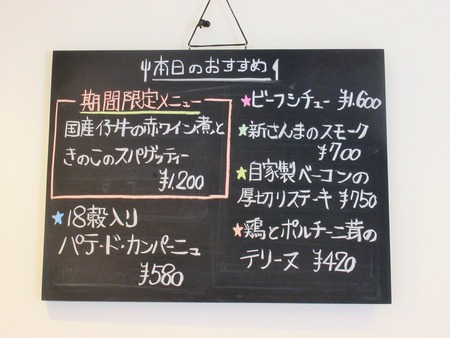 本日のおすすめ
期間限定メニュー
国産仔牛の赤ワイン煮と
きのこのスパゲッティー
¥1.200
★18穀入り
パテ・ド・カンパーニュ
¥580
★ビーフシチュー ¥1.600
★新さんまのスモーク
¥700
★自家製ベーコンの
厚切りステーキ ¥750
★鶏とポルチーニ茸の
テリーヌ ¥420